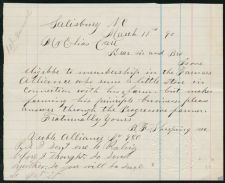 Salisbury N.C
March 18th 90
Mr Elias Carr
Dear Sir and Bro
Is one
eligible to membership in the Farmers
Alliance who runs a little store in
connection with his farm but makes
farming his principle business please
answer through the Progressive farmer
Fraternally Yours
Alliance No 780
P.S I sent one to
before I thought to send
so you will be sure